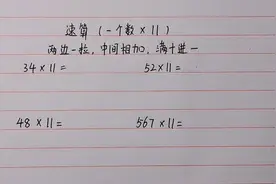 速算（一个数×11）
两边一拉，中间相加，满十进一
34×11= 52×11=
48×11= 567×11=